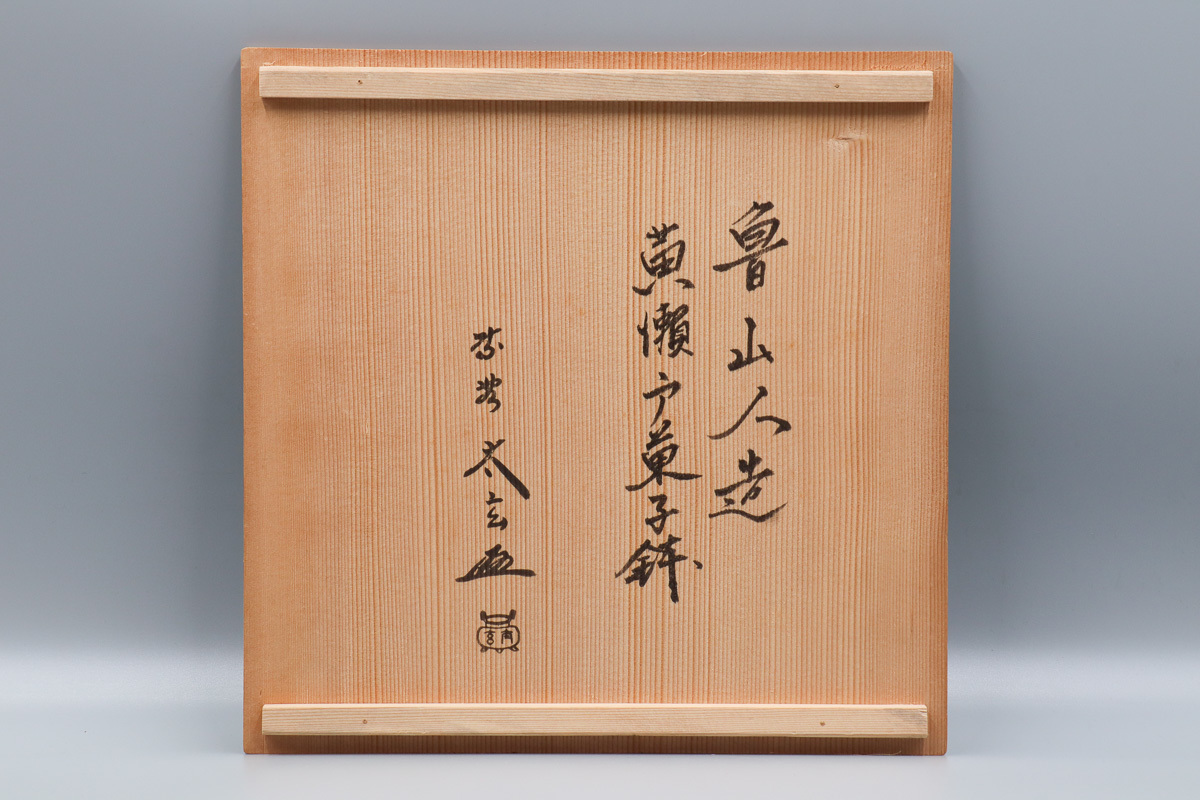 魯山人造
黄瀬戸菓子鉢
太玄